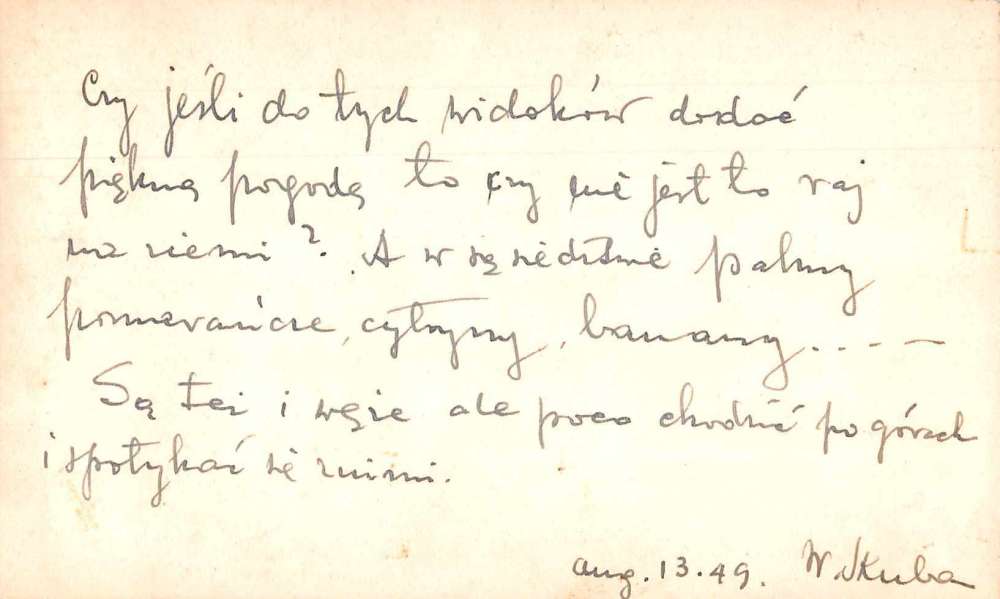 Czy jeśli do tych widoków dodać
piękną pogodę to czy nie jest to raj
na ziemi? A w sąsiedztwie palmy
pomarańcze, cytryny, banany....--
Są też i węże ale poco chodzić po górach
i spotykać się z nimi.
aug. 13. 49. W. Skuba